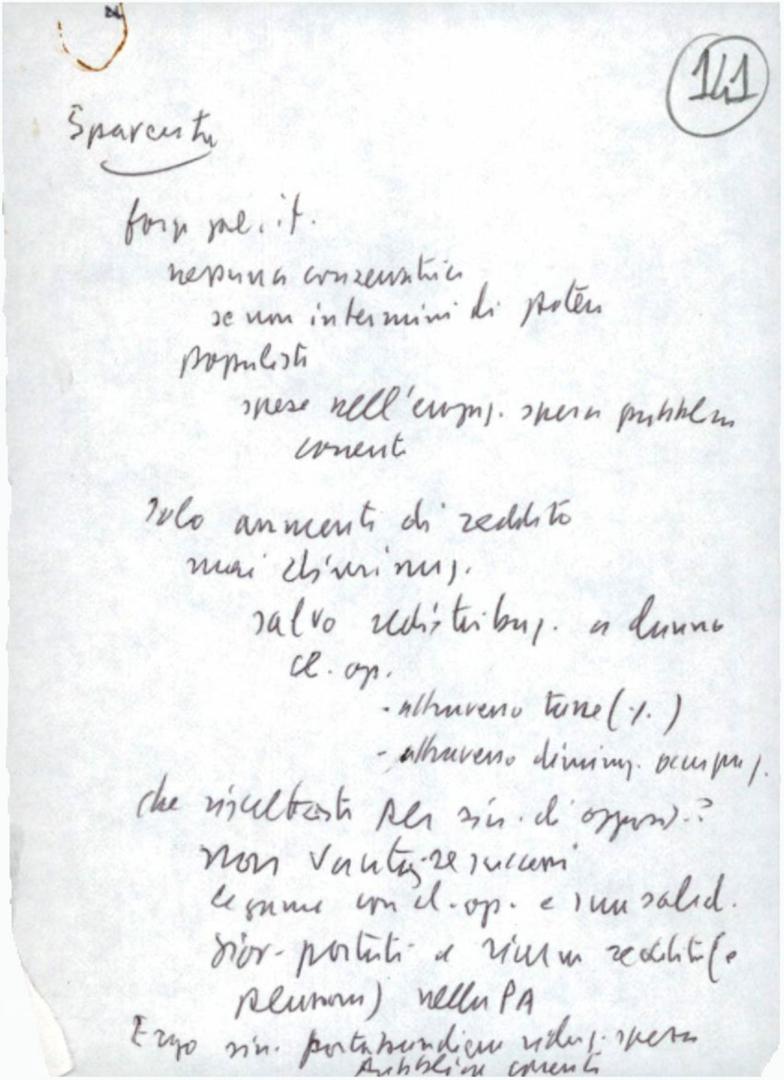 141
Sparcista
forze pol. it.
nessuna conservatrice
se non in termini di potere
populisti
spese nell'emerg. spesa pubblica
corrente
solo aumenti di reddito
mai diminuz.
salvo redistribuz. a danno
cl. op.
- attraverso tasse (%)
- attraverso diminuz. occupaz.
che risultati per sin. di opposiz.?
non
legame con cl. op. e sua solid.
portati a reddito (e
pensioni) nella PA
Ergo sin. portabandiera riduz. spesa
pubblica corrente